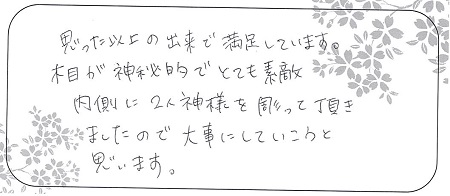 思った以上の出来で満足しています。
木目が神秘的でとても素敵
内側に2人神様を彫って頂き
ましたので大事にしていこうと
思います。